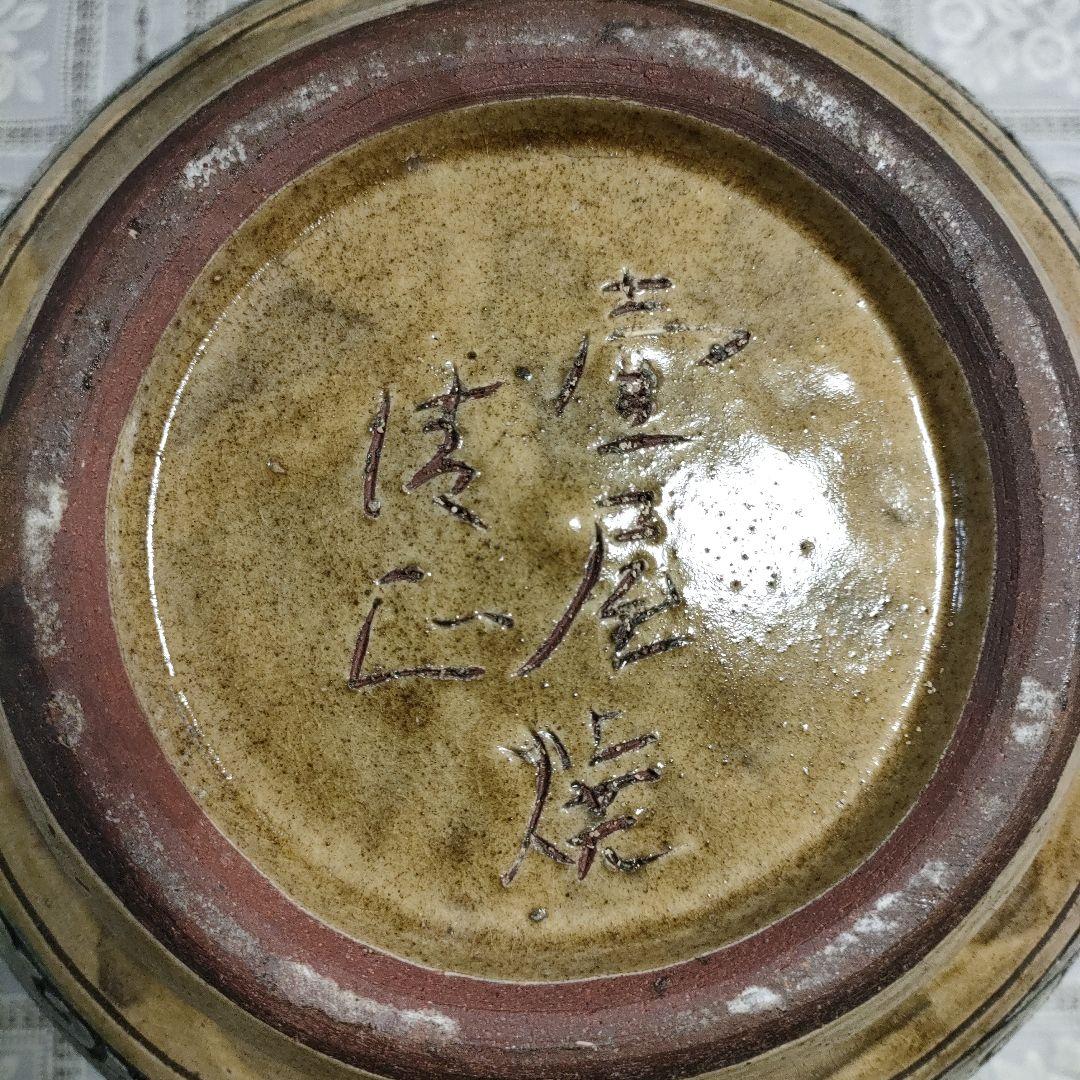 壺屋焼
清正